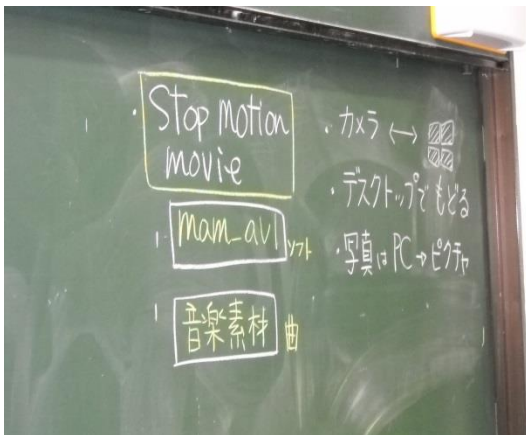 Stop motion
movie
mam_avi ソフト
音楽素材 曲
・カメラ ↔
・デスクトップでもどる
・写真はPC→ピクチャ